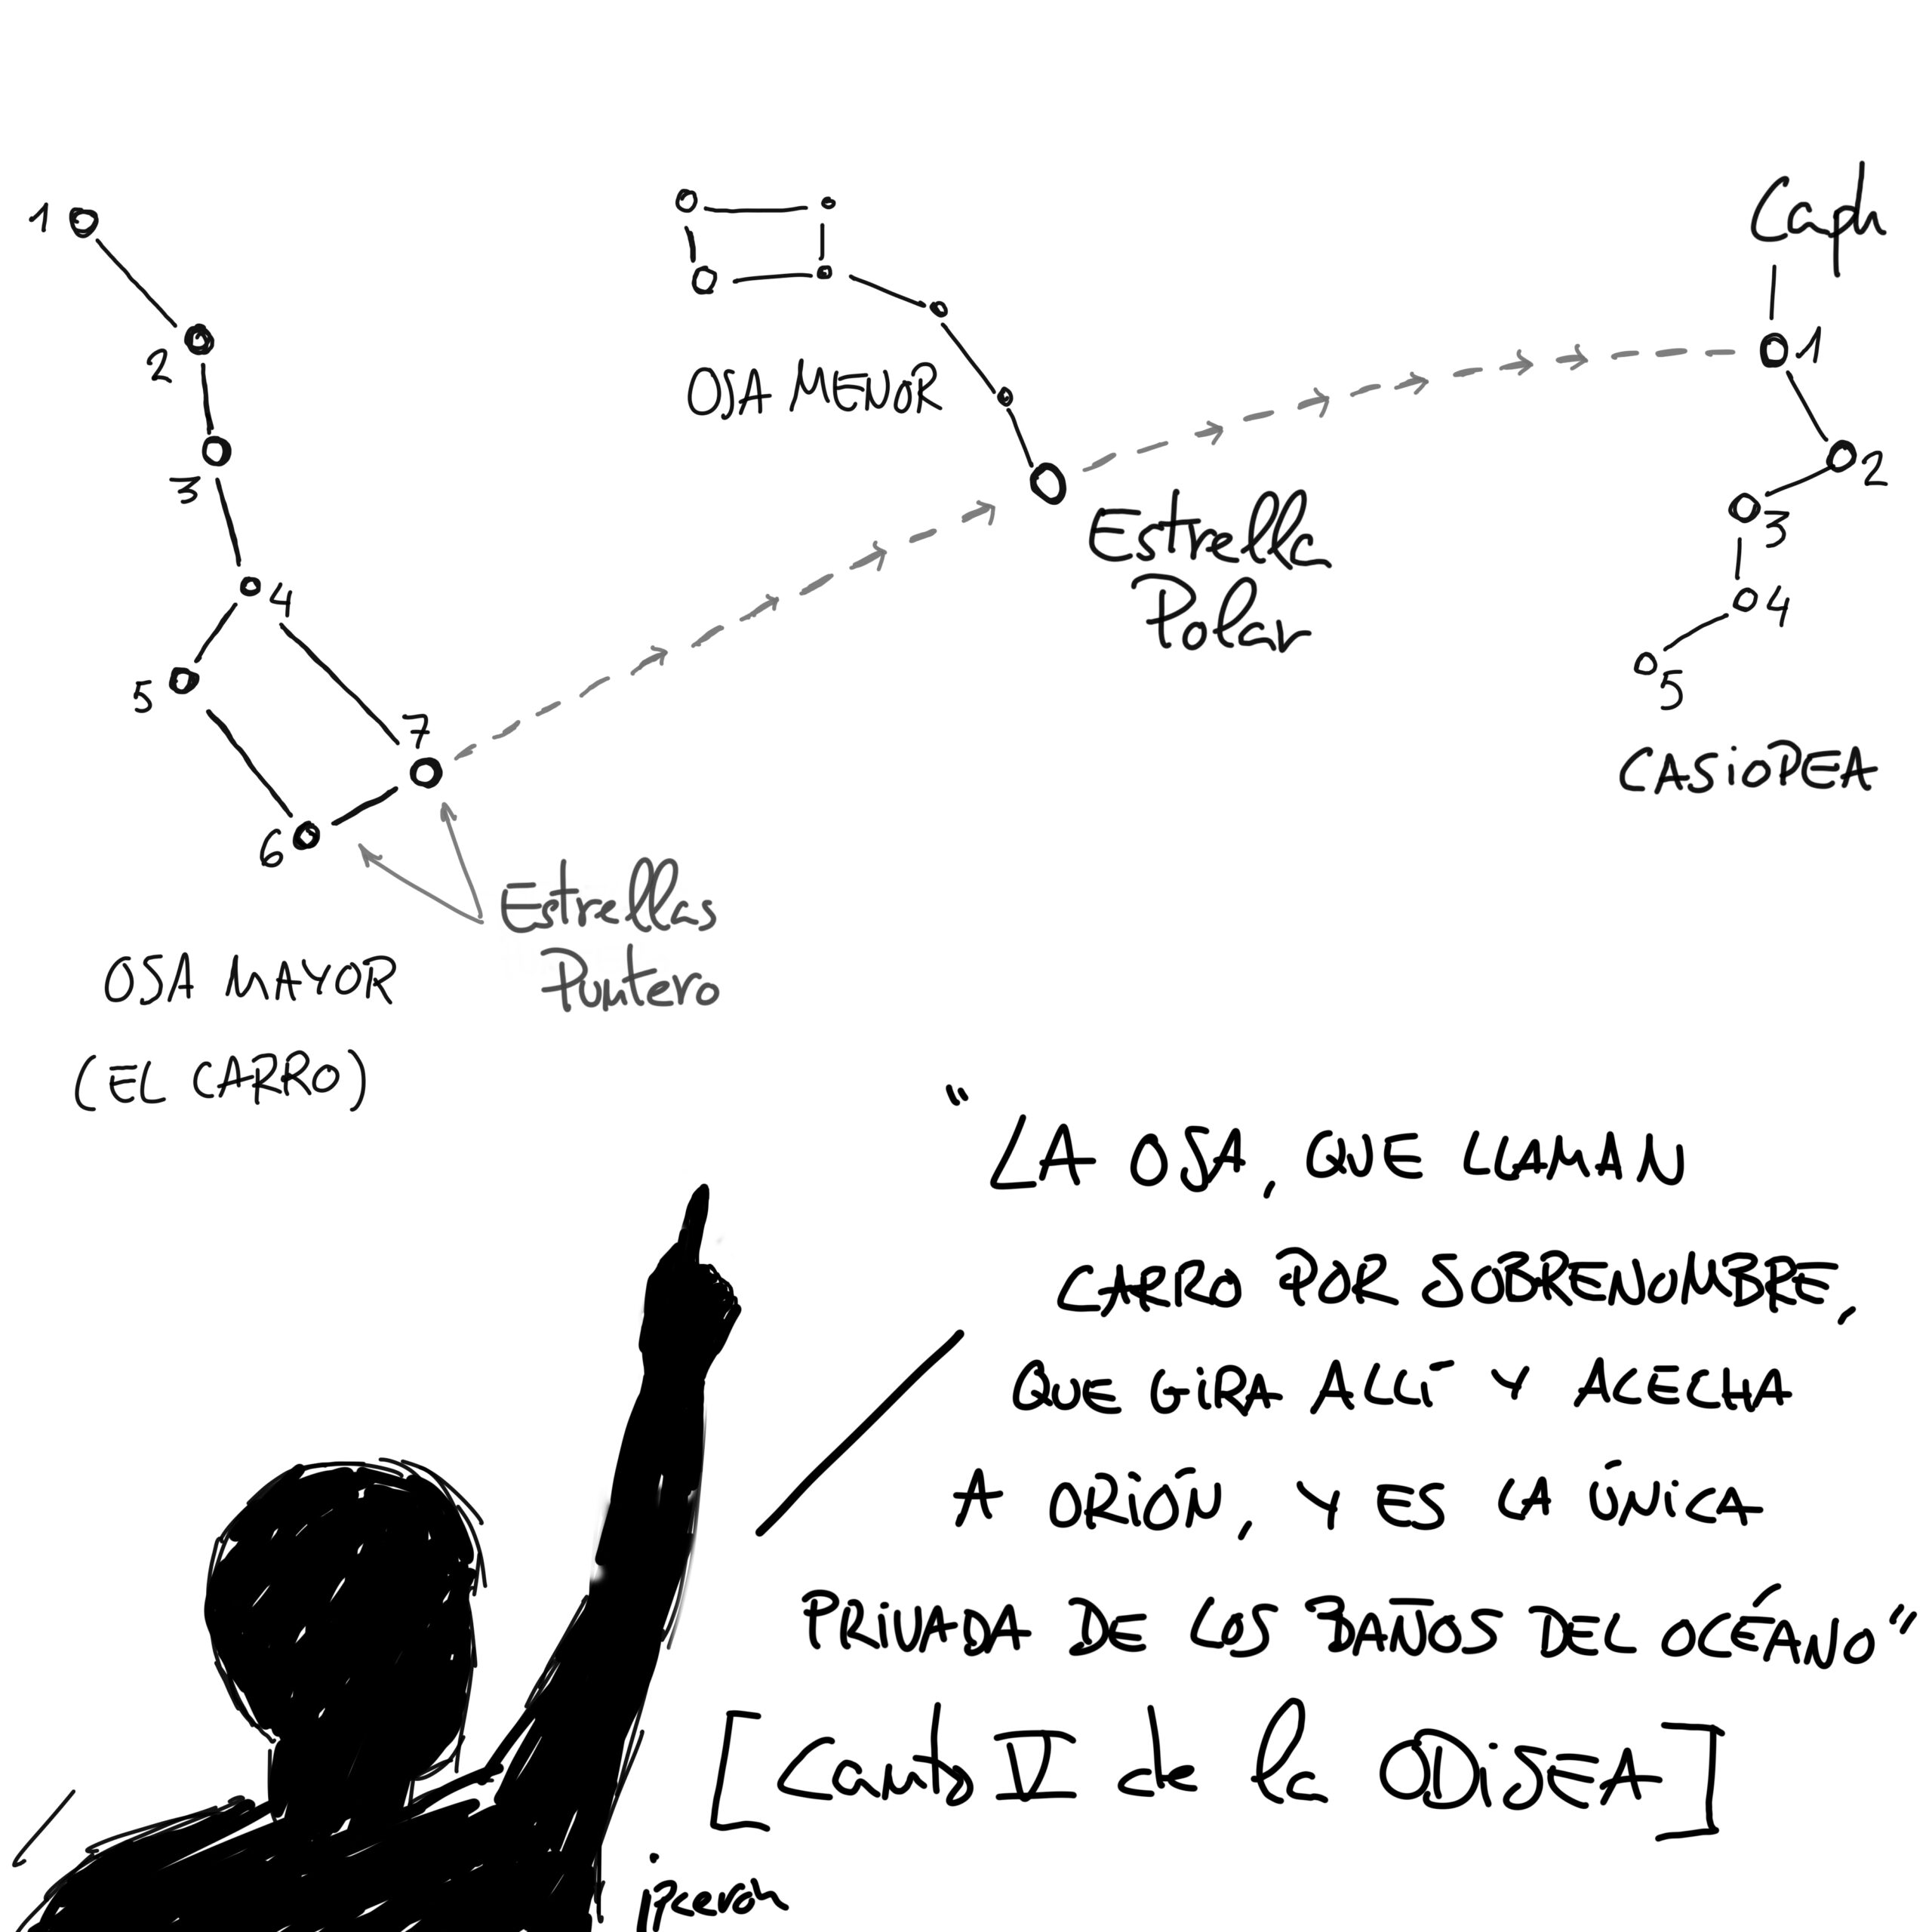 1
2
3
4
5
6
7
OSA MAYOR
(EL CARRO)
Estrellas
Puntero
OSA MENOR
Estrella
Polar
Caph
1
2
3
4
5
CASIOPEA
"LA OSA, QUE LLAMAN
CARRO POR SOBRENOMBRE,
QUE GIRA ALLÍ Y ACECHA
A ORIÓN, Y ES LA ÚNICA
PRIVADA DE LOS BAÑOS DEL OCÉANO"
[Canto V de la ODISEA]